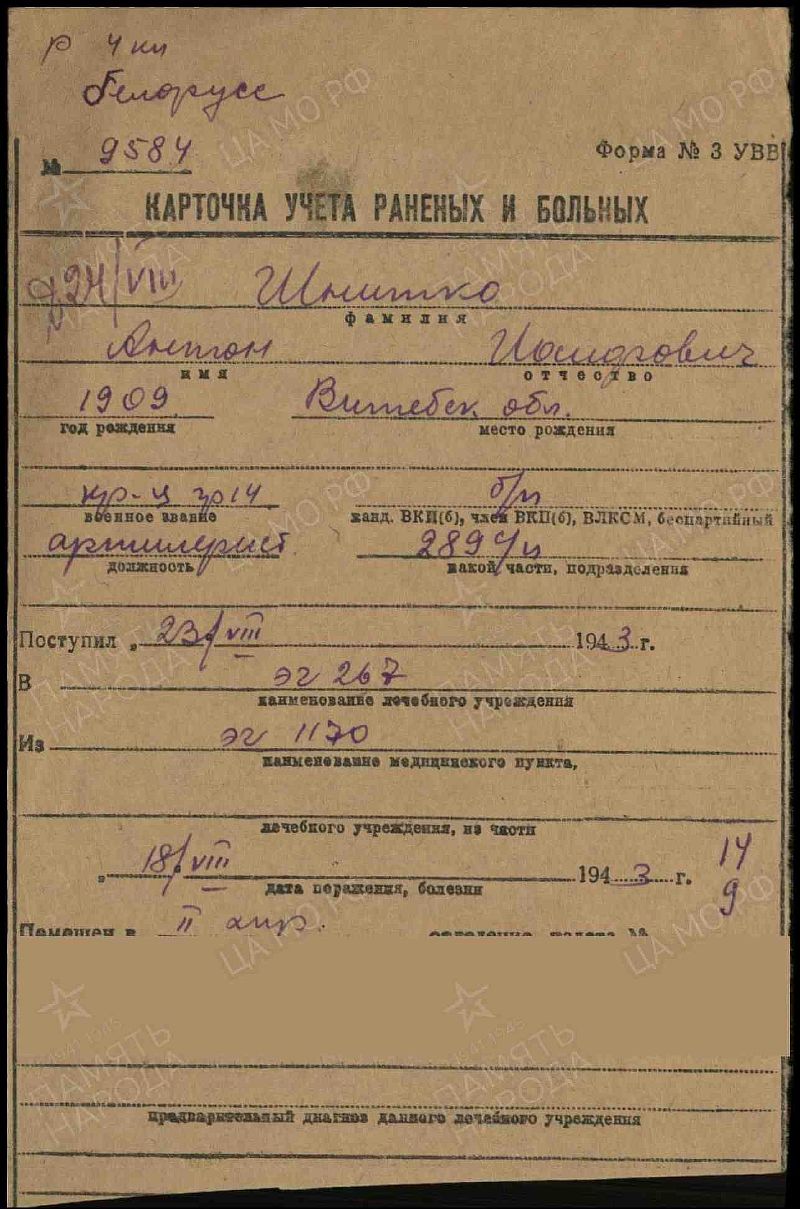 р 4 кп
белорусс
№ 9584
Форма № 3 УВВ
КАРТОЧКА УЧЕТА РАНЕНЫХ И БОЛЬНЫХ
24/VIII Шнитко
фамилия
Антон
имя отчество
1909 Витебск обл.
год рождения место рождения
кр-ц б/п
военное звание канд. ВКП(б), член ВКП(б), ВЛКСМ, беспартийный
артилерист
должность какой части, подразделения
Поступил „ 23/VIII 1943 г.
В эг 267
наименование лечебного учреждения
Из эг 1170
наименование медицинского пункта,
лечебного учреждения, из части
„ 18/VIII 1943 г. 14
дата поражения, болезни 9
Помещен в II хир. отделение, палата №
Предварительный диагноз данного лечебного учреждения
ЦА МО РФ
ПАМЯТЬ НАРОДА
1941-1945